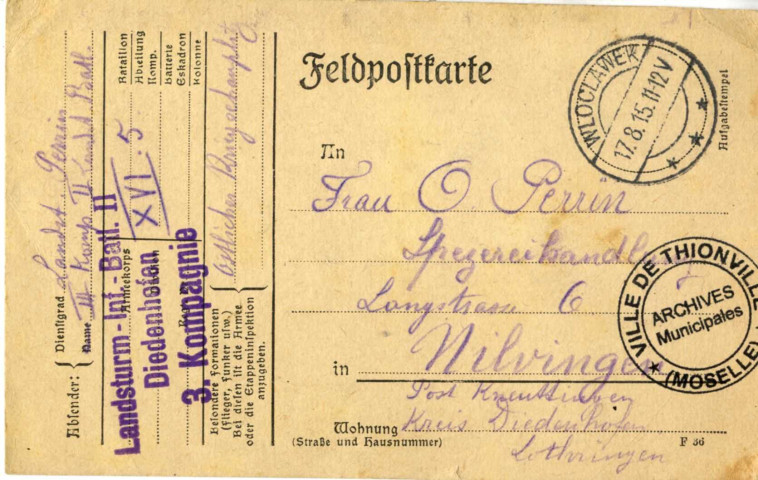 Feldpostkarte
WLOCLAWEK
17.8.15.11-12V
Aufgabestempel
An
Frau O. Perrin
Spezereihandlung
Langstrasse 6
in Nilvingen
Post Kneuttingen
Kreis Diedenhofen
Lothringen
Wohnung
(Straße und Hausnummer)
F 56
VILLE DE THIONVILLE
ARCHIVES
Municipales
(MOSELLE)
Absender:
Dienstgrad Landst. Perrin
Name III Komp II Landst Batl.
Bataillon
Abteilung
Komp.
Batterie
Eskadron
Kolonne
XVI. 5
Armeekorps
Landsturm-Inf.-Batl. II
Diedenhofen
3. Kompagnie
Besondere Formationen
(Flieger, Funker usw.)
Bei diesen ist die Armee
oder die Etappeninspektion
anzugeben.
Östlicher Kriegsschauplatz